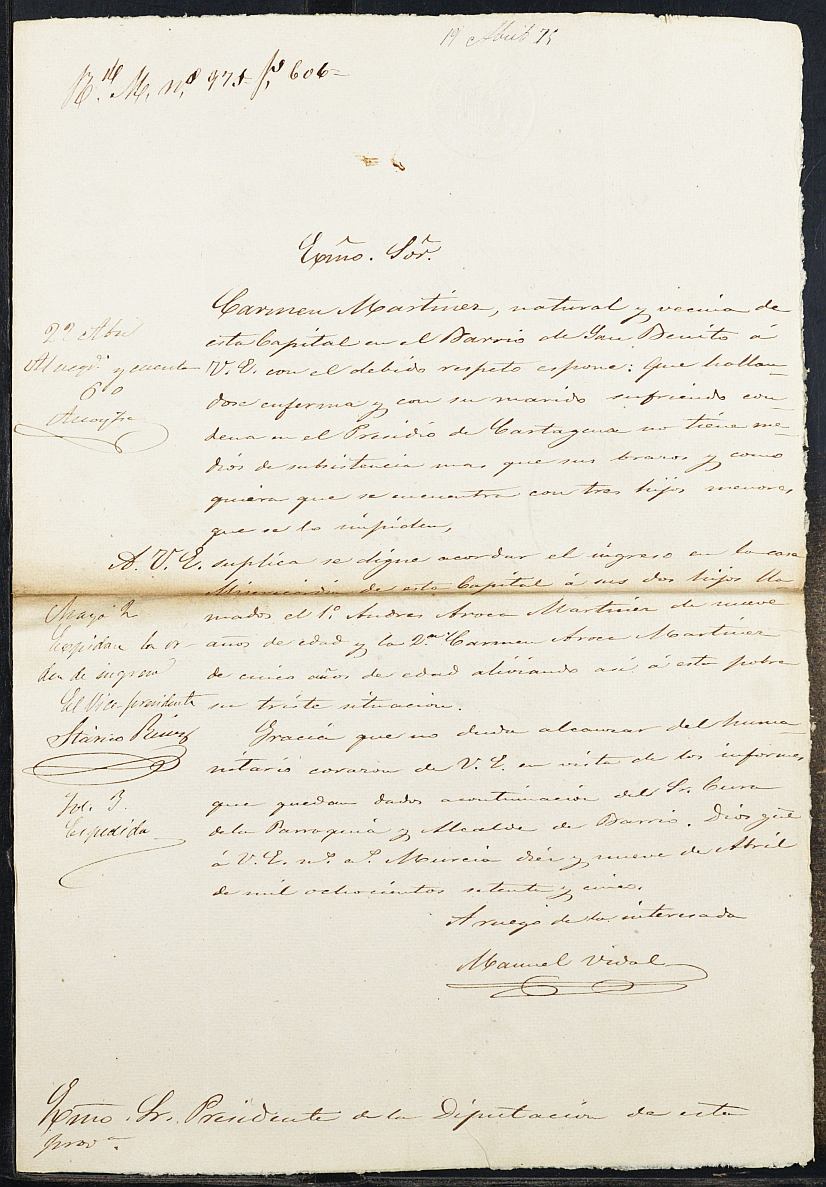 19 Abril 75
Rte. M. nº 975 fº 606=
Exmo. Sor.
Carmen Martinez, natural y vecina de
esta Capital en el Barrio de San Benito á
V. E. con el debido respeto espone: Que hallan-
dose enferma y con su marido sufriendo con-
dena en el Presidio de Cartagena no tiene me-
dios de subsistencia mas que sus brazos y como
quiera que se encuentra con tres hijos menores
que se lo impiden,
A. V. E. suplica se digne acordar el ingreso en la casa
Misericordia de esta Capital á sus dos hijos lla-
mados el 1º Andres Aroca Martinez de nueve
años de edad y la 2ª Carmen Aroca Martinez
de cinco años de edad aliviando asi á esta pobre
su triste situacion.
Gracia que no duda alcanzar del huma-
nitario corazon de V. E. en vista de los informes
que quedan dados acontinuacion del Sr. Cura
dela Parroquia y Alcalde de Barrio. Dios gûe
á V. E. ms. as. Murcia diez y nueve de Abril
de mil ochocientos setenta y cinco.
A ruego de la interesada
Manuel Vidal
22 Abril
Al negdo. y cuenta
Mayo 2
Espidan la or-
den de ingreso
El Vice-presidente
id. 3.
Espedida
Exmo. Sr. Presidente de la Diputacion de esta
prova.